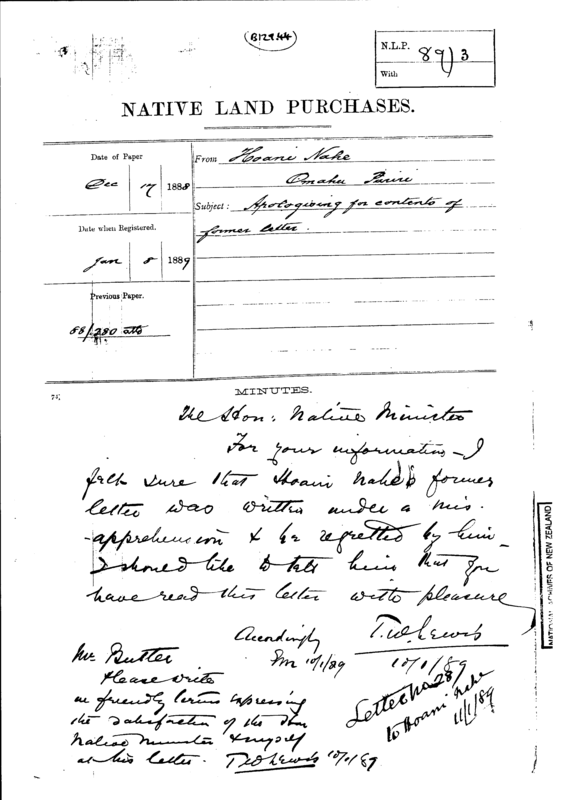 B129.44
N.L.P. 89/3
With
NATIVE LAND PURCHASES.
Date of Paper
Dec 17 1888
Date when Registered.
Jan 8 1889
Previous Paper.
88/280 atto
From Hoani Nahe
Omahu Puriri
Subject: Apologising for contents of
former letter.
MINUTES.
The Hon: Native Minister
For your information – I
felt sure that Hoani Nahe's former
letter was written under a mis-
-apprehension & be regretted by him
I should like to tell him that you
have read this letter with pleasure
T.W. Lewis
10/1/89
Accordingly
10/1/89
Mr Butler
Please write
in friendly terms expressing
the satisfaction of the Hon
Native Minister & myself
at his letter. T W Lewis 10/1/89
Letter No 28/
to Hoani Nahe
11/1/89
NATIONAL ARCHIVES OF NEW ZEALAND